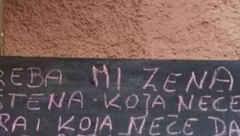 REBA MI ŽENA
ŠTENA KOJA NEĆE
RA I KOJA NEĆE DA